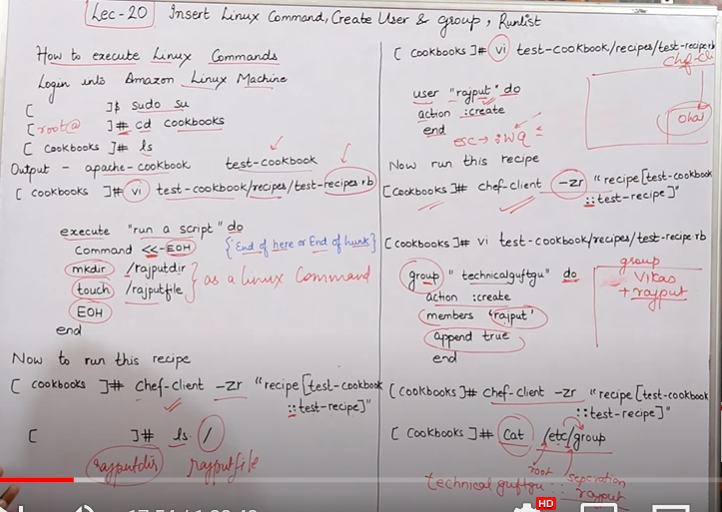 Lec-20 Insert Linux Command, Create User & group, Runlist
How to execute Linux Commands
Login into Amazon Linux Machine
[ ]$ sudo su
[root@ ]# cd cookbooks
[ cookbooks ]# ls
Output - apache-cookbook test-cookbook
[ cookbooks ]# vi test-cookbook/recipes/test-recipes rb
execute "run a script" do
command <<-EOH {End of here or End of hunk}
mkdir /rajputdir
touch /rajputfile } as a linux Command
EOH
end
Now to run this recipe
[ cookbooks ]# chef-client -zr "recipe[test-cookbook
::test-recipe]"
[ ]# ls /
rajputdir rajputfile
[ cookbooks ]# vi test-cookbook/recipes/test-recipe rb
user "rajput" do
action :create
end
esc → :wq
ohai
Now run this recipe
[cookbooks ]# chef-client -zr "recipe[test-cookbook
::test-recipe]"
[cookbooks ]# vi test-cookbook/recipes/test-recipe rb
group "technicalguftgu" do
action :create
members 'rajput'
append true
end
group
vikas
+ rajput
[cookbooks ]# chef-client -zr "recipe[test-cookbook
::test-recipe]"
[ cookbooks ]# cat /etc/group
root seperation
technicalguftgu :: rajput
HD